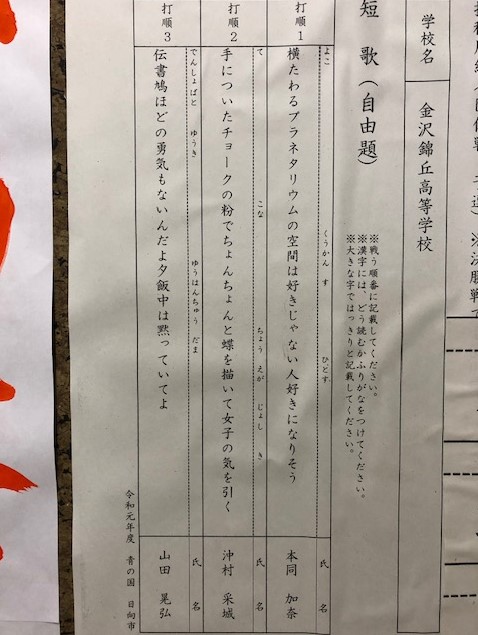 学校名 金沢錦丘高等学校
短歌(自由題)
※戦う順番に記載してください。
※漢字には、どう読むかふりがなをつけてください。
※大きな字ではっきりと記載してください。
打順1
よこ くうかん す ひとす
横たわるプラネタリウムの空間は好きじゃない人好きになりそう
氏名
本同 加奈
打順2
て こな ちょう えが じょし き
手についたチョークの粉でちょんちょんと蝶を描いて女子の気を引く
氏名
沖村 采城
打順3
でんしょばと ゆうき ゆうはんちゅう だま
伝書鳩ほどの勇気もないんだよ夕飯中は黙っていてよ
氏名
山田 晃弘
令和元年度 青の国 日向市